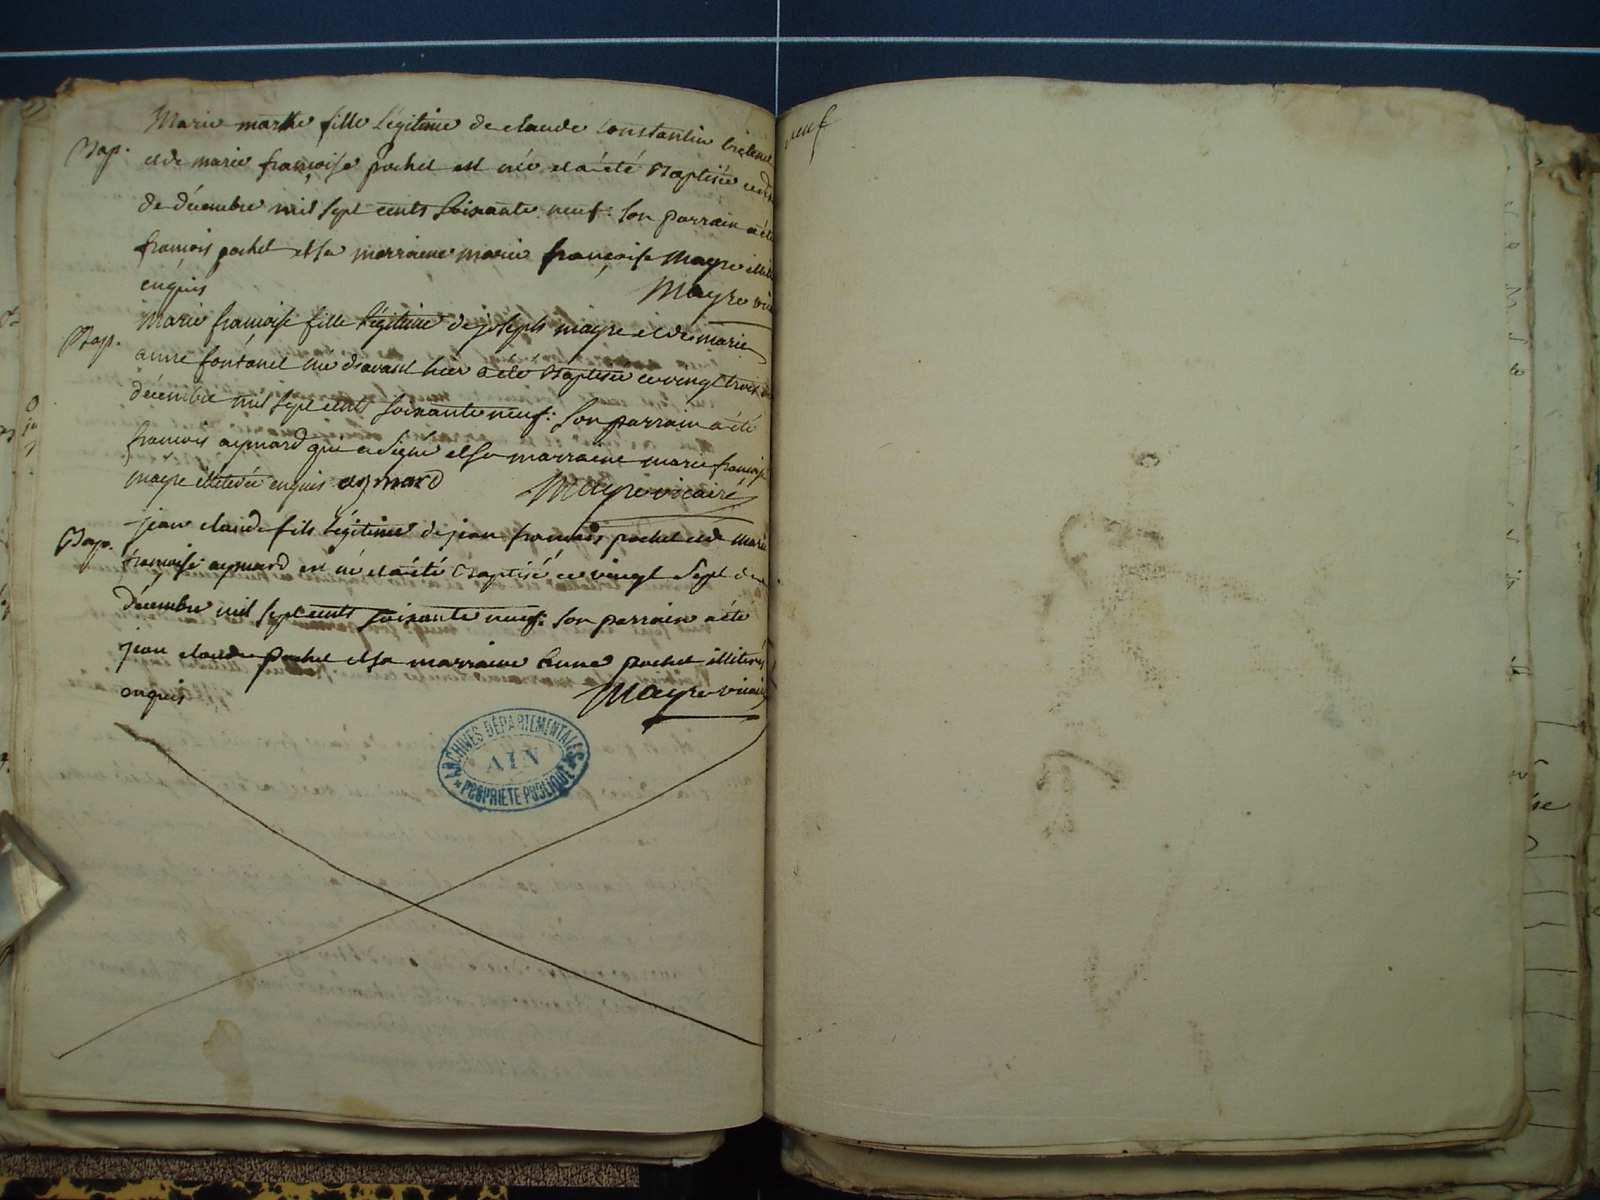 Marie marthe fille Légitime de claude Constantin
Bap.
et de marie françoise pochet est née et a été Baptisée
de décembre mil sept cents soixante neuf: son parrain a été
françois pochet et sa marraine marie françoise Mayre
enquis
Mayre
Marie françoise fille Légitime de joseph mayre et de marie
Bap.
anne fontanel née d'avant hier a été Baptisée ce vingt trois
décembre mil sept cents soixante neuf: son parrain a été
françois aymard qui a signé et sa marraine marie françoise
mayre illiterée enquis aymard
Mayre vicaire
jean claude fils Légitime de jean francois pochet et de Marie
Bap.
françoise aymard est né et a été Baptisé ce vingt sept de
décembre mil sept cents soixante neuf: son parrain a été
jean claude pochet et sa marraine anne pochet illiterés
enquis
Mayre vicaire
ARCHIVES DÉPARTEMENTALES
AIN
PROPRIÉTÉ PUBLIQUE
neuf